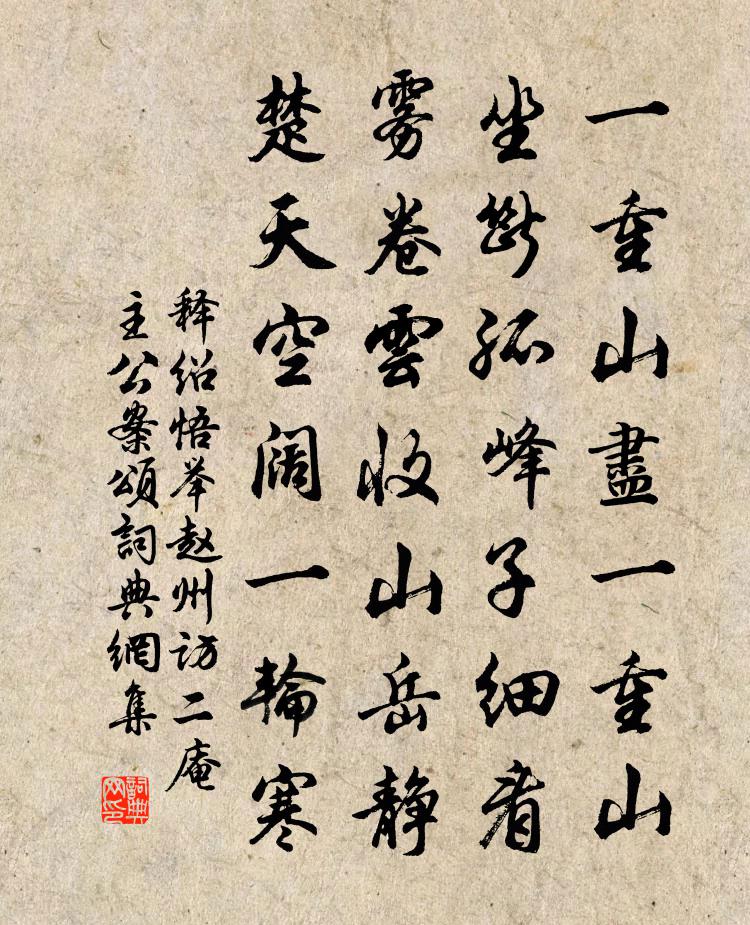 一重山盡一重山
坐断孤峰子细看
雾卷雲收山岳静
楚天空阔一輪寒
释绍悟举赵州访二庵
主公案頌詞典網集
詞典
网印